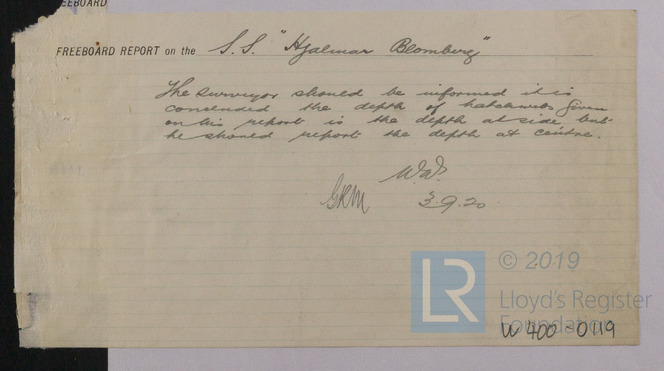 EEBOARD
FREEBOARD REPORT on the S.S. "Hjalmar Blomberg"
The surveyor should be informed it is
concluded the depth of hatchwebs given
on his report is the depth at side but
he should report the depth at centre.
W.W.
GRM 3.9.20
LR © 2019
Lloyd's Register
Foundation
W400-0119